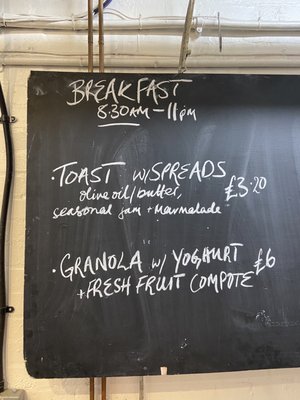 BREAKFAST
8.30AM - 11pm
· TOAST w/SPREADS
olive oil/butter, £3.20
seasonal jam + marmalade
· GRANOLA w/ YOGHURT £6
+ FRESH FRUIT COMPOTE